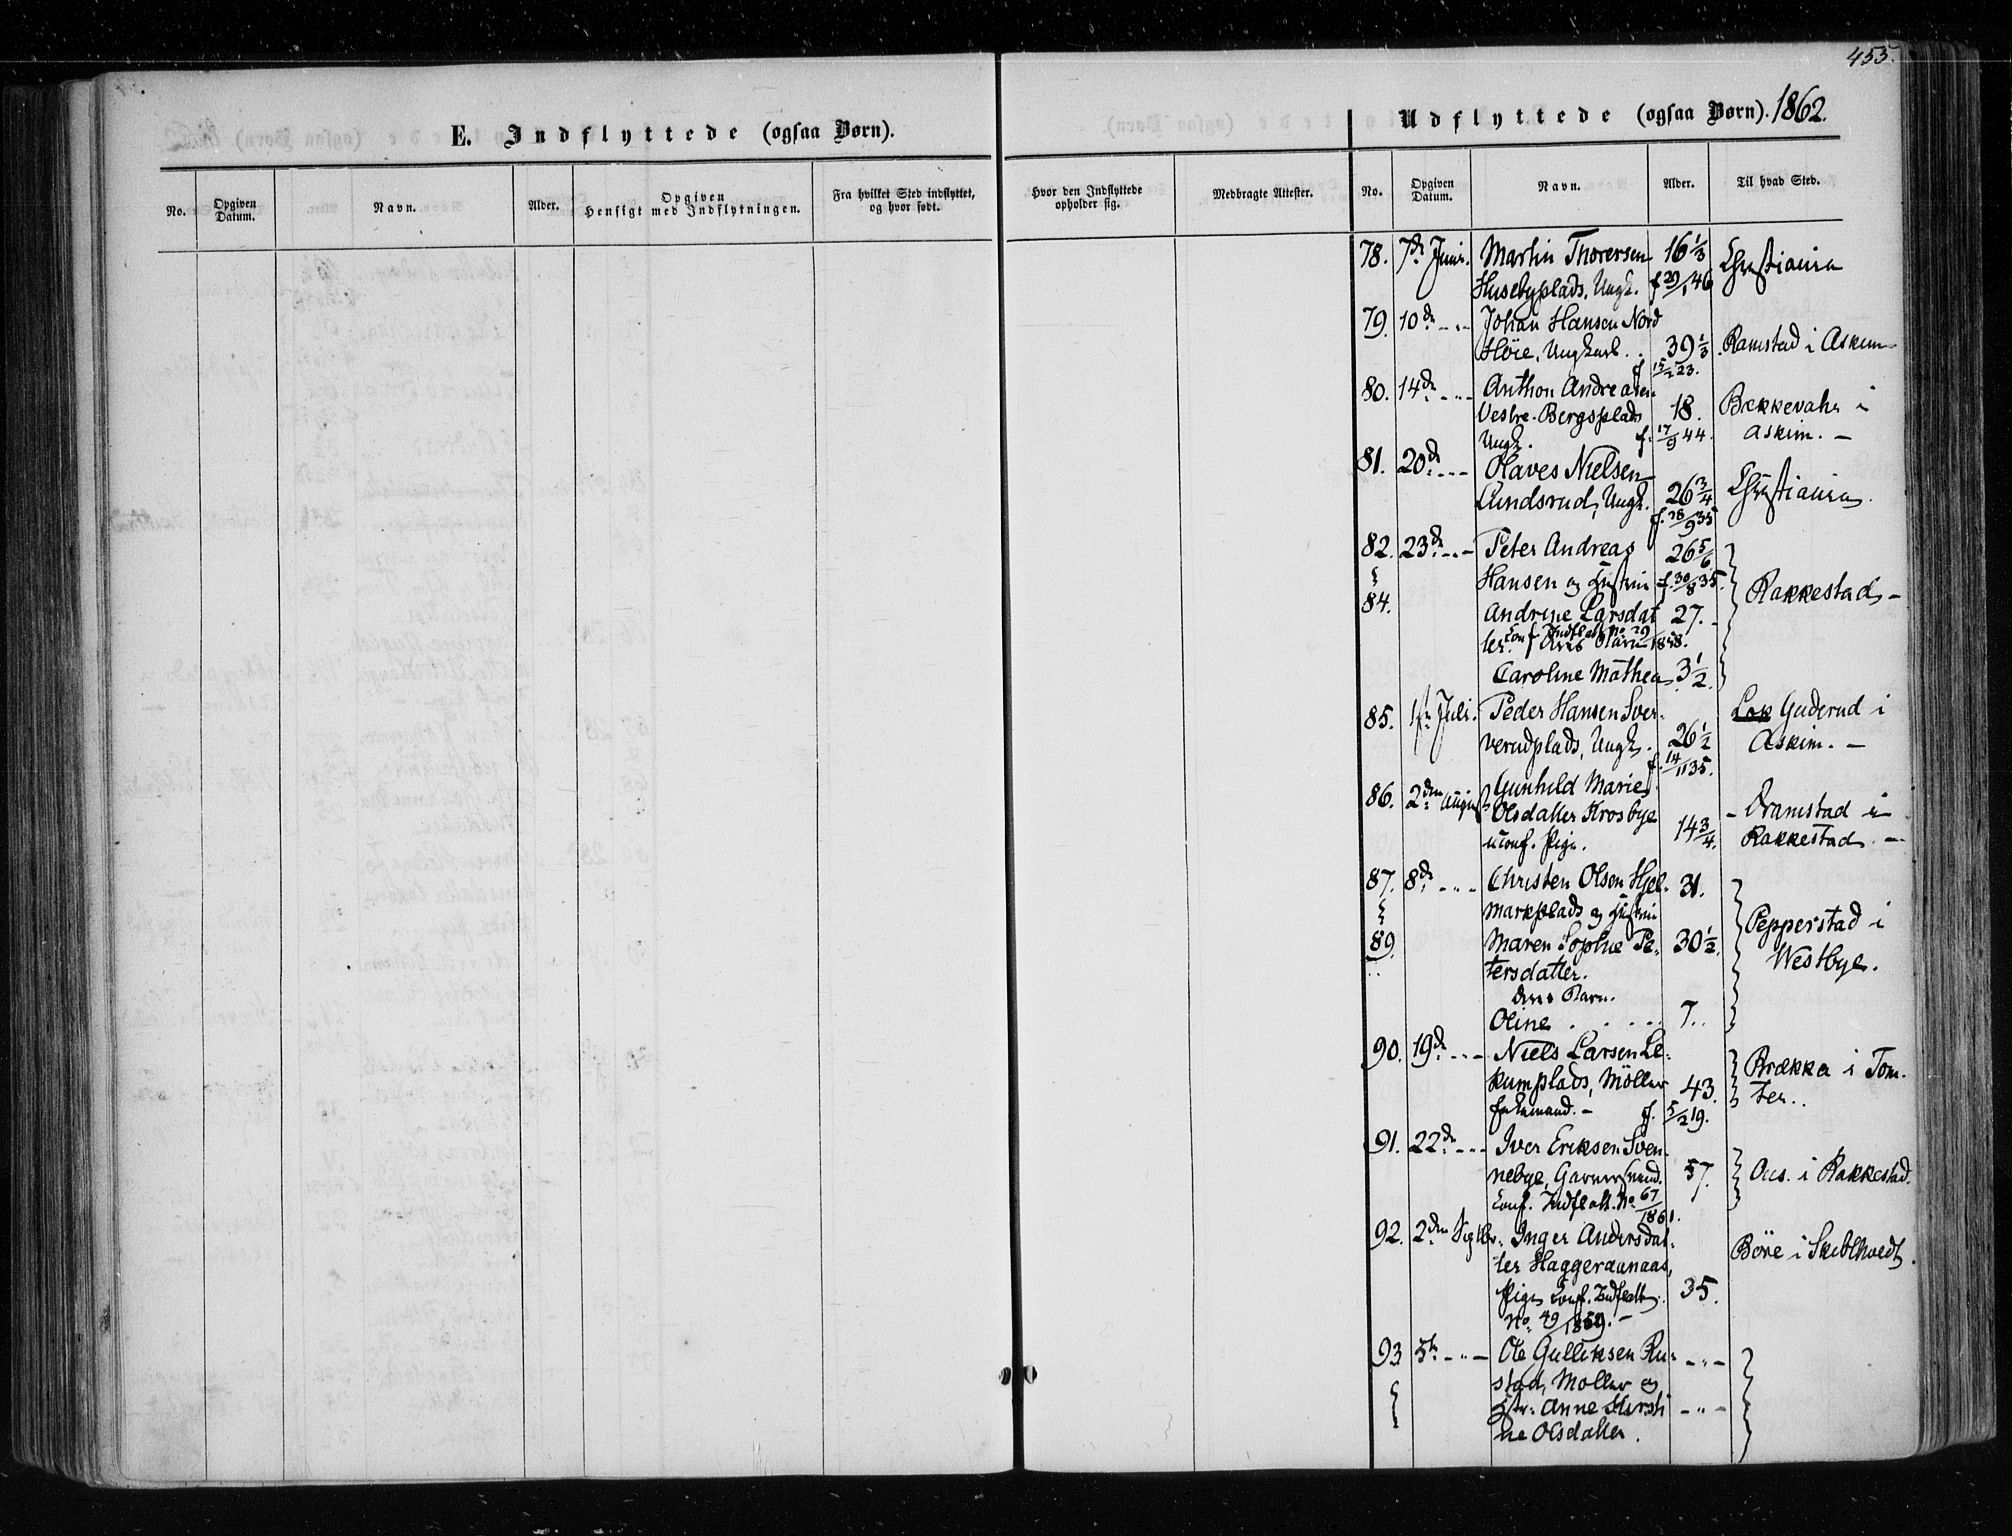 455.
E. Indflyttede (ogsaa Børn).
Udflyttede (ogsaa Børn). 1862.
No. Opgiven Datum. Navn. Alder. Opgiven Hensigt med Indflytningen. Fra hvilket Sted indflyttet, og hvor født. Hvor den Indflyttede opholder sig. Medbragte Attester. No. Opgiven Datum. Navn. Alder. Til hvad Sted.
78. 7de Juni. Martin Thorersen 16 1/3 Christiania
Husebyplads, Ungk. f 29/1 46
79. 10de -"- Johan Hansen Nord
Høie, Ungkarl. 39 1/3 Ramstad i Askim
f 15/2 23.
80. 14de -"- Anthon Andreasen
Vestre-Bergsplads 18. Bækkevahr i
Ungk. f. 17/9 44. Askim. -
81. 20de -"- Olaves Nielsen
Lundsrud, Ungk. 26 3/4 Christiania.
f. 28/9 35
82. 23de -"- Peter Andreas 26 5/6
Hansen og Hustru f. 30/8 35. Rakkestad -
84. Andrine Larsdat 27. -
ter. Conf. Indflytt. No 29/1858.
Caroline Mathea 3 1/2.
85. 1ste Juli. Peder Hansen Sver- Guderud i
verudplads, Ungk. 26 1/2 Askim. -
f. 14/11 35.
86. 2den August Gunhild Marie
Olsdatter Krosbye - Dramstad i
uconf. Pige. 14 3/4. Rakkestad. -
87. 8de -"- Christen Olsen Hjel- 31.
markplads og Hustru Pepperstad i
89. Maren Sophie Pe- 30 1/2. Westbye.
tersdatter.
deres Barn.
Oline . . . . . 7..
90. 19de -"- Niels Larsen Le- Brække i Tom-
kumplads, Möller 43. ter..
Enkemand. - f. 5/2 19.
91. 22de -"- Iver Eriksen Sven-
nebye, Gaardmand. 57. Aas. i Rakkestad.
Conf. Indflytt. No 67/1861.
92. 2den Septbr. Inger Andersdat- Böre i Skibthvedt.
ter Haggeraanaas,
Pige Conf. Indflytt. 35.
No. 49/1859. -
93 5te -"- Ole Gulliksen Ru- -"-
stad, Møller og
Hstr. Anne Kirsti -"-
ne Olsdatter.